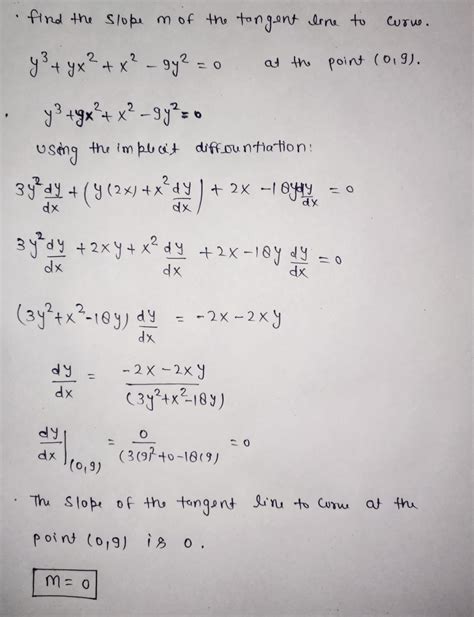 · find the slope m of the tangent line to curve.
y³ + yx² + x² - 9y² = 0 at the point (0,9).
· y³ + yx² + x² - 9y² = 0
using the implicit diffrountiation:
3y² dy/dx + (y(2x) + x² dy/dx) + 2x - 18y dy/dx = 0
3y² dy/dx + 2xy + x² dy/dx + 2x - 18y dy/dx = 0
(3y² + x² - 18y) dy/dx = -2x - 2xy
dy/dx = -2x - 2xy / (3y² + x² - 18y)
dy/dx |(0,9) = 0 / (3(9)² + 0 - 18(9) = 0
· The slope of the tangent line to curve at the
point (0,9) is 0.
m = 0